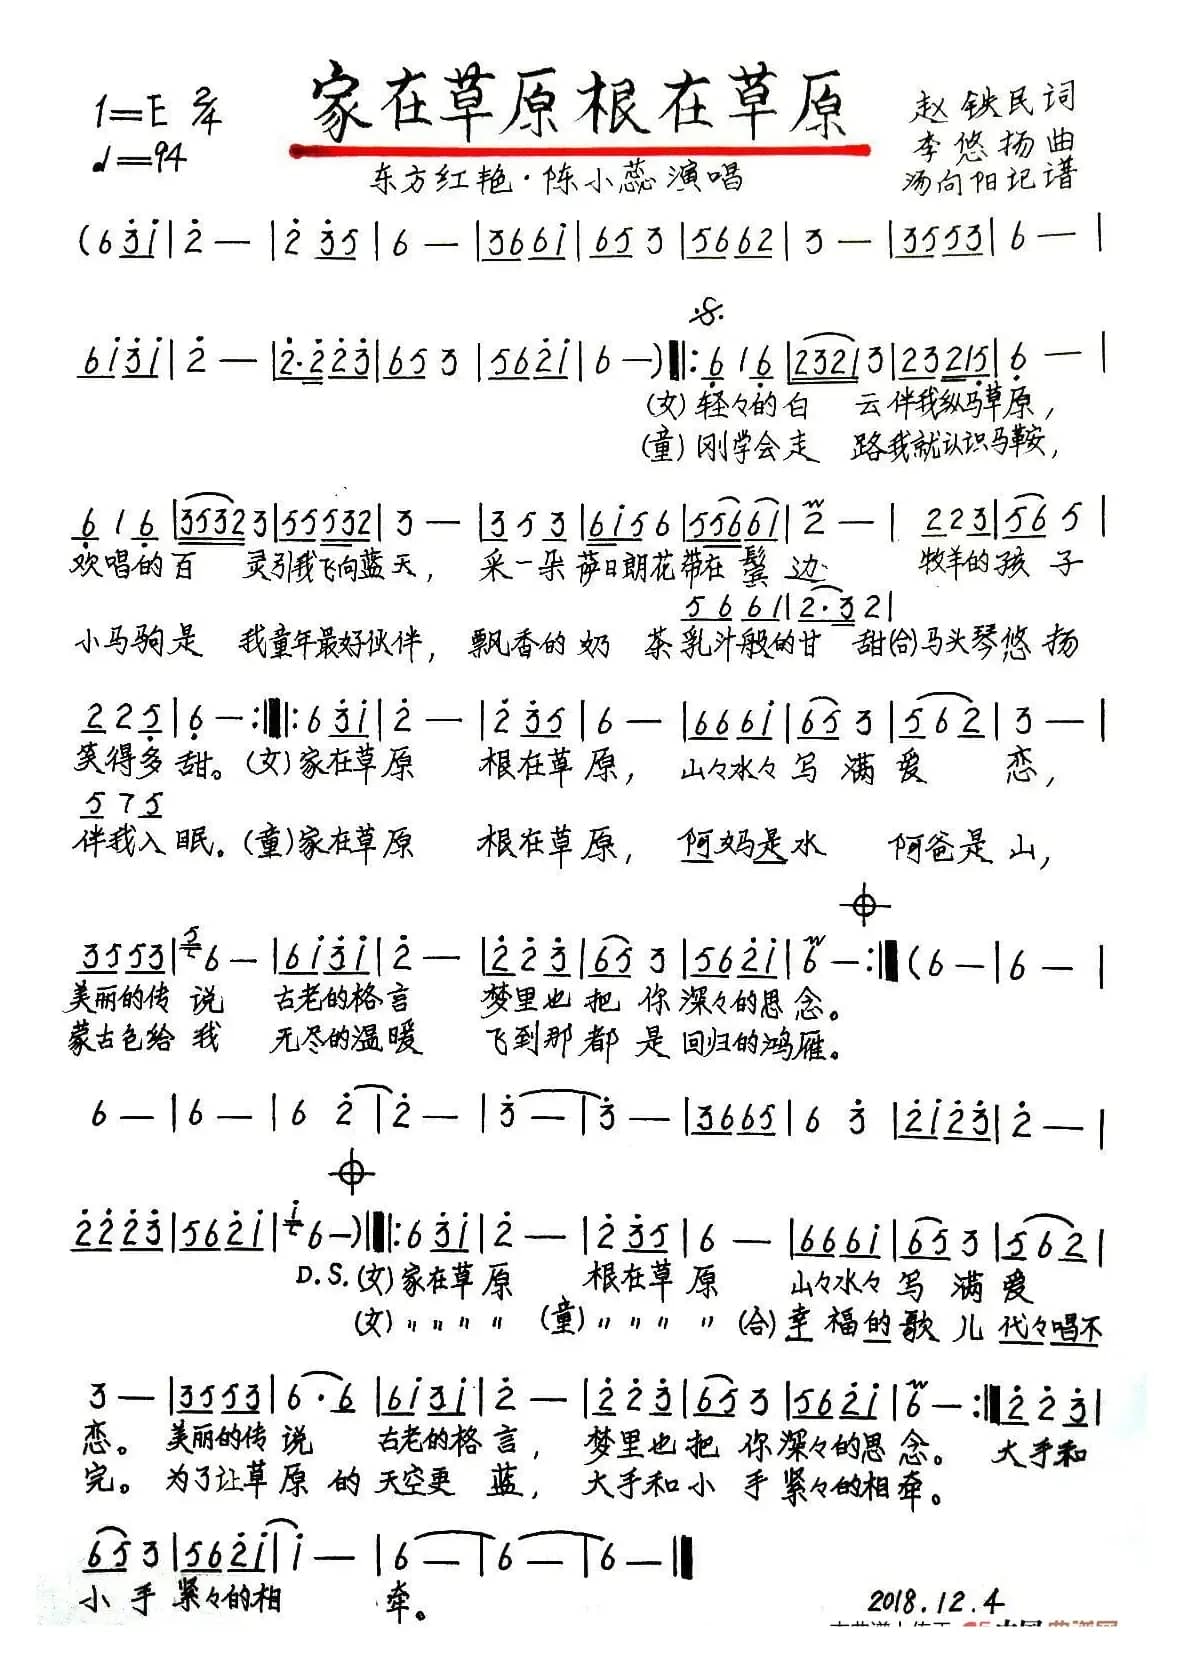 家在草原根在草原
1=E 2/4
♩=94
赵铁民词
李悠扬曲
汤向阳记谱
东方红艳·陈小蕊演唱
(6 3̇ 1̇ | 2̇ — | 2̇ 3̇ 5 | 6 — | 3 6 6 1̇ | 6 5 3 | 5 6 6 2 | 3 — | 3 5 5 3 | 6 — |
6 1̇ 3̇ 1̇ | 2̇ — | 2̇· 2̇ 2̇ 3̇ | 6 5 3 | 5 6 2̇ 1̇ | 6 —) ‖: 6̣ 1 6̣ | 2 3 2 1 3 | 2 3 2 1 5̣ | 6̣ — |
(女)轻々的白 云伴我纵马草原，
(童)刚学会走 路我就认识马鞍，
6̣ 1 6̣ | 3 5 3 2 3 | 5 5 5 3 2 | 3 — | 3 5 3 | 6 1̇ 5 6 | 5 5 6 6 1̇ | 2̇ — | 2 2 3 | 5 6 5 |
欢唱的百 灵引我飞向蓝天， 采一朵萨日朗花带在鬓边 牧羊的孩子
5 6 6 1 | 2· 3 2 |
小马驹是 我童年最好伙伴， 飘香的奶 茶乳汁般的甘 甜(合)马头琴悠扬
2 2 5̣ | 6̣ — :‖: 6 3̇ 1̇ | 2̇ — | 2̇ 3̇ 5 | 6 — | 6 6 6 1̇ | 6 5 3 | 5 6 2 | 3 — |
笑得多甜。(女)家在草原 根在草原， 山々水々写满爱 恋，
5 7 5
伴我入眠。(童)家在草原 根在草原， 阿妈是水 阿爸是山，
3 5 5 3 | 5 6 — | 6 1̇ 3̇ 1̇ | 2̇ — | 2̇ 2̇ 3̇ | 6 5 3 | 5 6 2̇ 1̇ | 6 — :‖ (6 — | 6 — |
美丽的传说 古老的格言 梦里也把你深々的思念。
蒙古色给我 无尽的温暖 飞到那都是回归的鸿雁。
6 — | 6 — | 6 2̇ | 2̇ — | 3̇ — | 3̇ — | 3 6 6 5 | 6 3̇ | 2̇ 1̇ 2̇ 3̇ | 2̇ — |
2̇ 2̇ 2̇ 3̇ | 5 6 2̇ 1̇ | 1̇ 6 —) ‖: 6 3̇ 1̇ | 2̇ — | 2̇ 3̇ 5 | 6 — | 6 6 6 1̇ | 6 5 3 | 5 6 2 |
D.S.(女)家在草原 根在草原 山々水々写满爱
(女)〃〃〃〃 (童)〃〃〃〃 (合)幸福的歌儿代々唱不
3 — | 3 5 5 3 | 6· 6 | 6 1̇ 3̇ 1̇ | 2̇ — | 2̇ 2̇ 3̇ | 6 5 3 | 5 6 2̇ 1̇ | 6 — :‖ 2̇ 2̇ 3̇ |
恋。美丽的传说 古老的格言， 梦里也把你深々的思念。 大手和
完。为了让草原的天空更蓝， 大手和小手紧々的相牵。
6 5 3 | 5 6 2̇ 1̇ | 1̇ — | 6 — | 6 — | 6 — ‖
小手紧々的相 牵。
2018.12.4